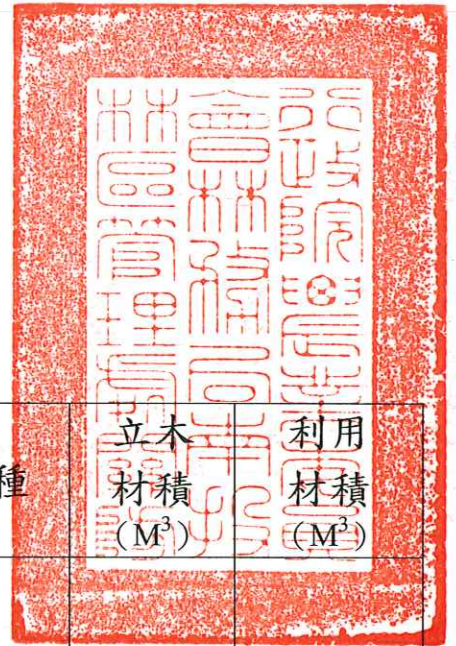 行政院農業委員
會林務局南投
林區管理處關防
種
立木
材積
(M³)
利用
材積
(M³)